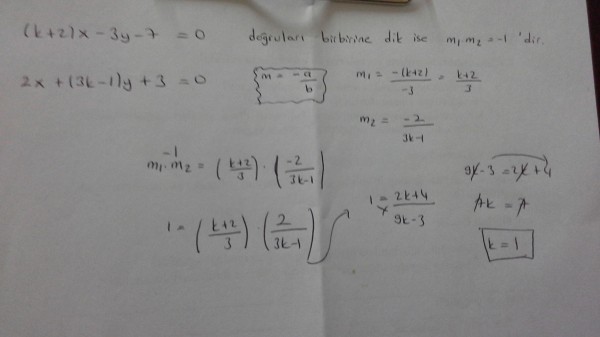 (k+2)x - 3y - 7 = 0 doğruları birbirine dik ise m₁.m₂ = -1 'dir.
2x + (3k-1)y + 3 = 0
m = -a/b
m₁ = -(k+2)/-3 = k+2/3
m₂ = -2/3k-1
-1
m₁.m₂ = (k+2/3) . (-2/3k-1)
1 = (k+2/3) . (2/3k-1)
1 = 2k+4/9k-3
9k - 3 = 2k + 4
7k = 7
k = 1